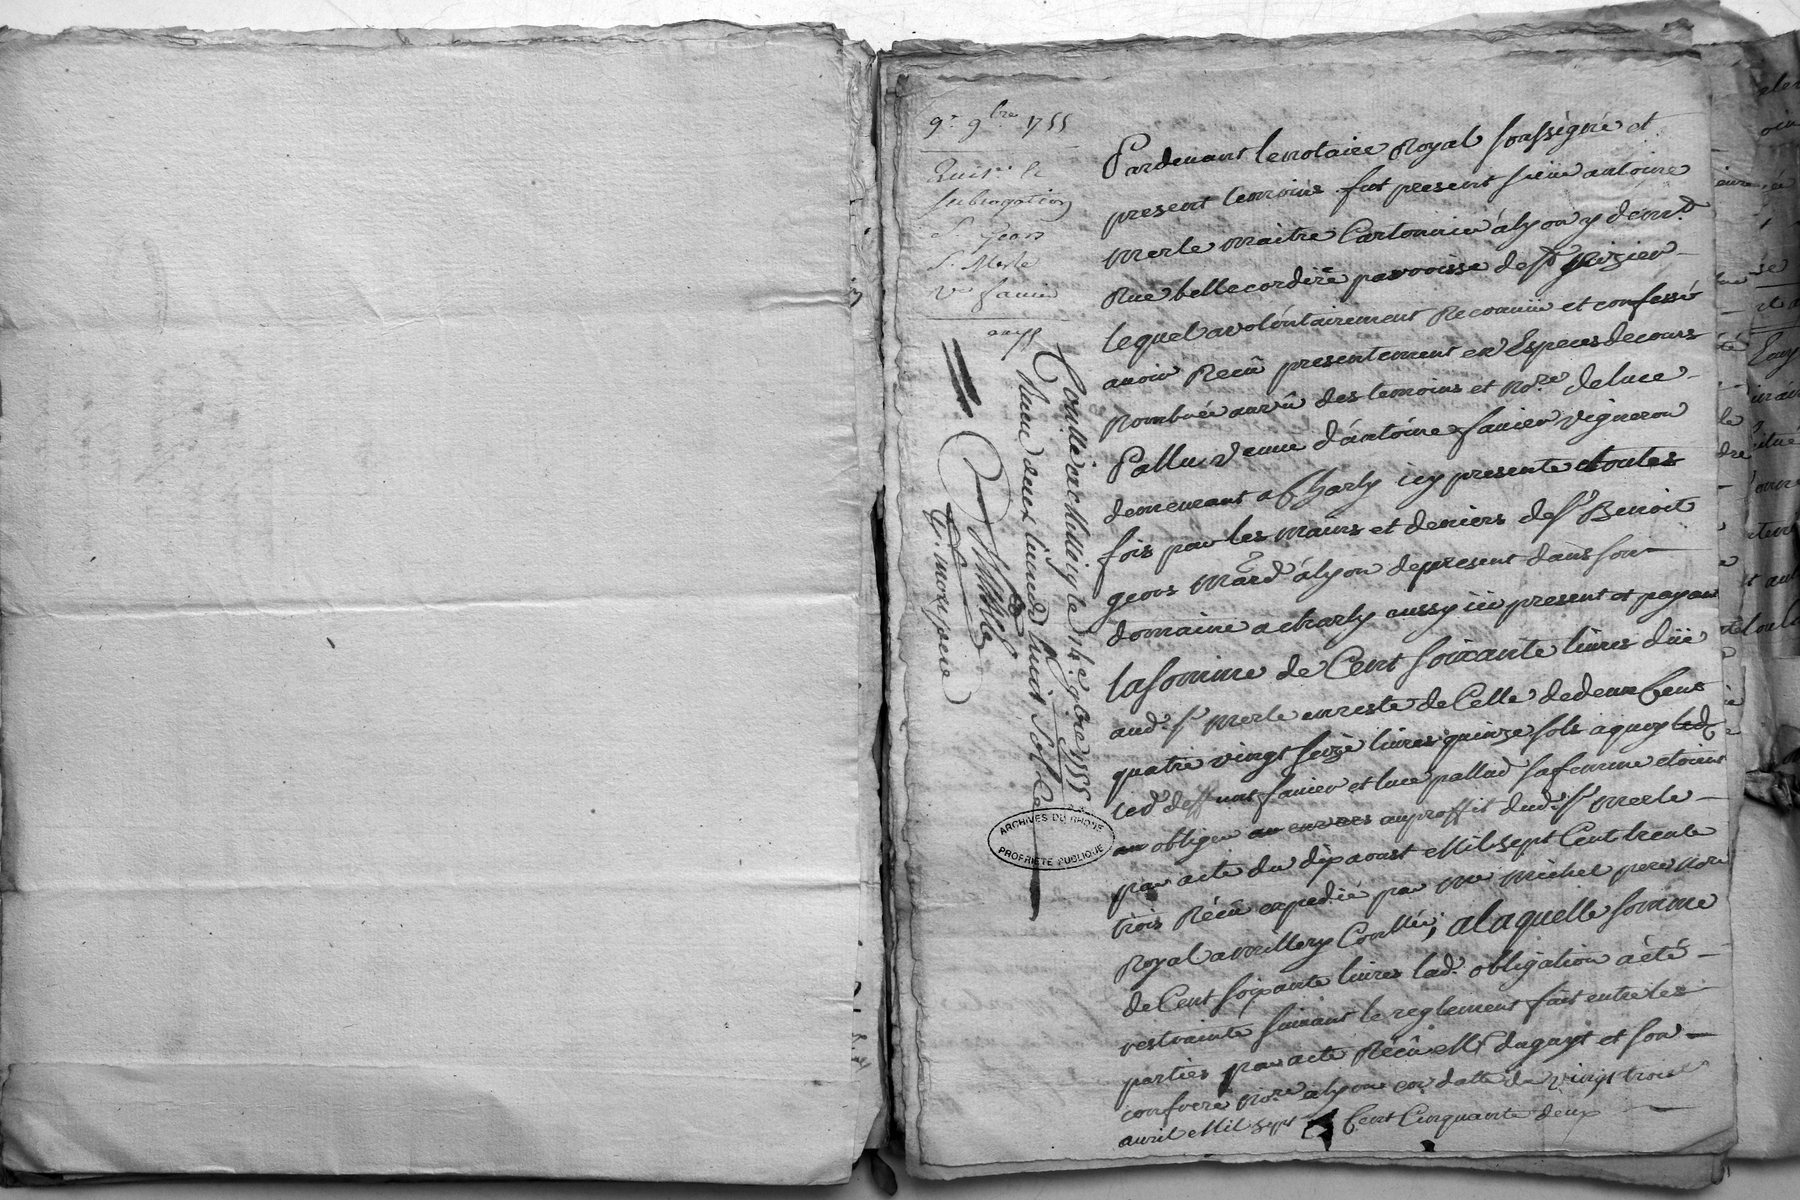 9e 9bre 1755
Quitce et
subrogation
Sr geors
Sr Merle
Ve favier
Controllé a Millery le 14e 9bre 1755
Receu deux livres huit sols
G. morey pere
Pardevant le notaire Royal soussigné et
present temoins fut present sieur antoine
merle maitre Cartonnier à lyon y demt
Rue bellecordiere parroisse de St Nizier
lequel a volontairement Reconnu et confessé
avoir Receu presentement en Especes de cours
Nombrée au vû des temoins et nore de luce
Pallu veuve d'antoine favier vigneron
demeurant a Charly icy presente et toutes
fois par les mains et deniers de sr Benoit
geors mard à lyon de present dans son
domaine a charly aussy ici present et payant
la somme de Cent soixante livres düe
aud. sr merle en reste de Celle de deux Cent
quatre vingt seize livres quinze sols a quoy led
led deffunt favier et luce pallud sa femme etoient
obliges envers au proffit dud. sr merle
par acte du dix aoust Mil sept Cent trente
trois Receu expedié par me michel pere nore
Royal a millery Contllé, a laquelle somme
de Cent soixante livres lad. obligation a été
restrainte suivant le reglement fait entre les
parties par acte Receu Me daguyt et son
confrere nore a lyon en datte du vingt trois
avril Mil sept Cent Cinquante deux
ARCHIVES DU RHONE
PROPRIETE PUBLIQUE